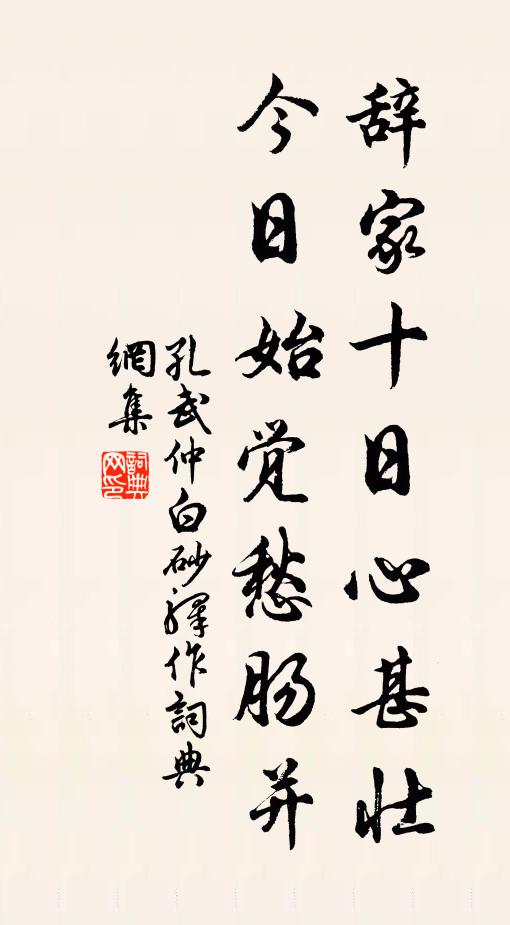 辞家十日心甚壮
今日始觉愁肠并
孔武仲白砂驿作詞典
網集
詞典網印